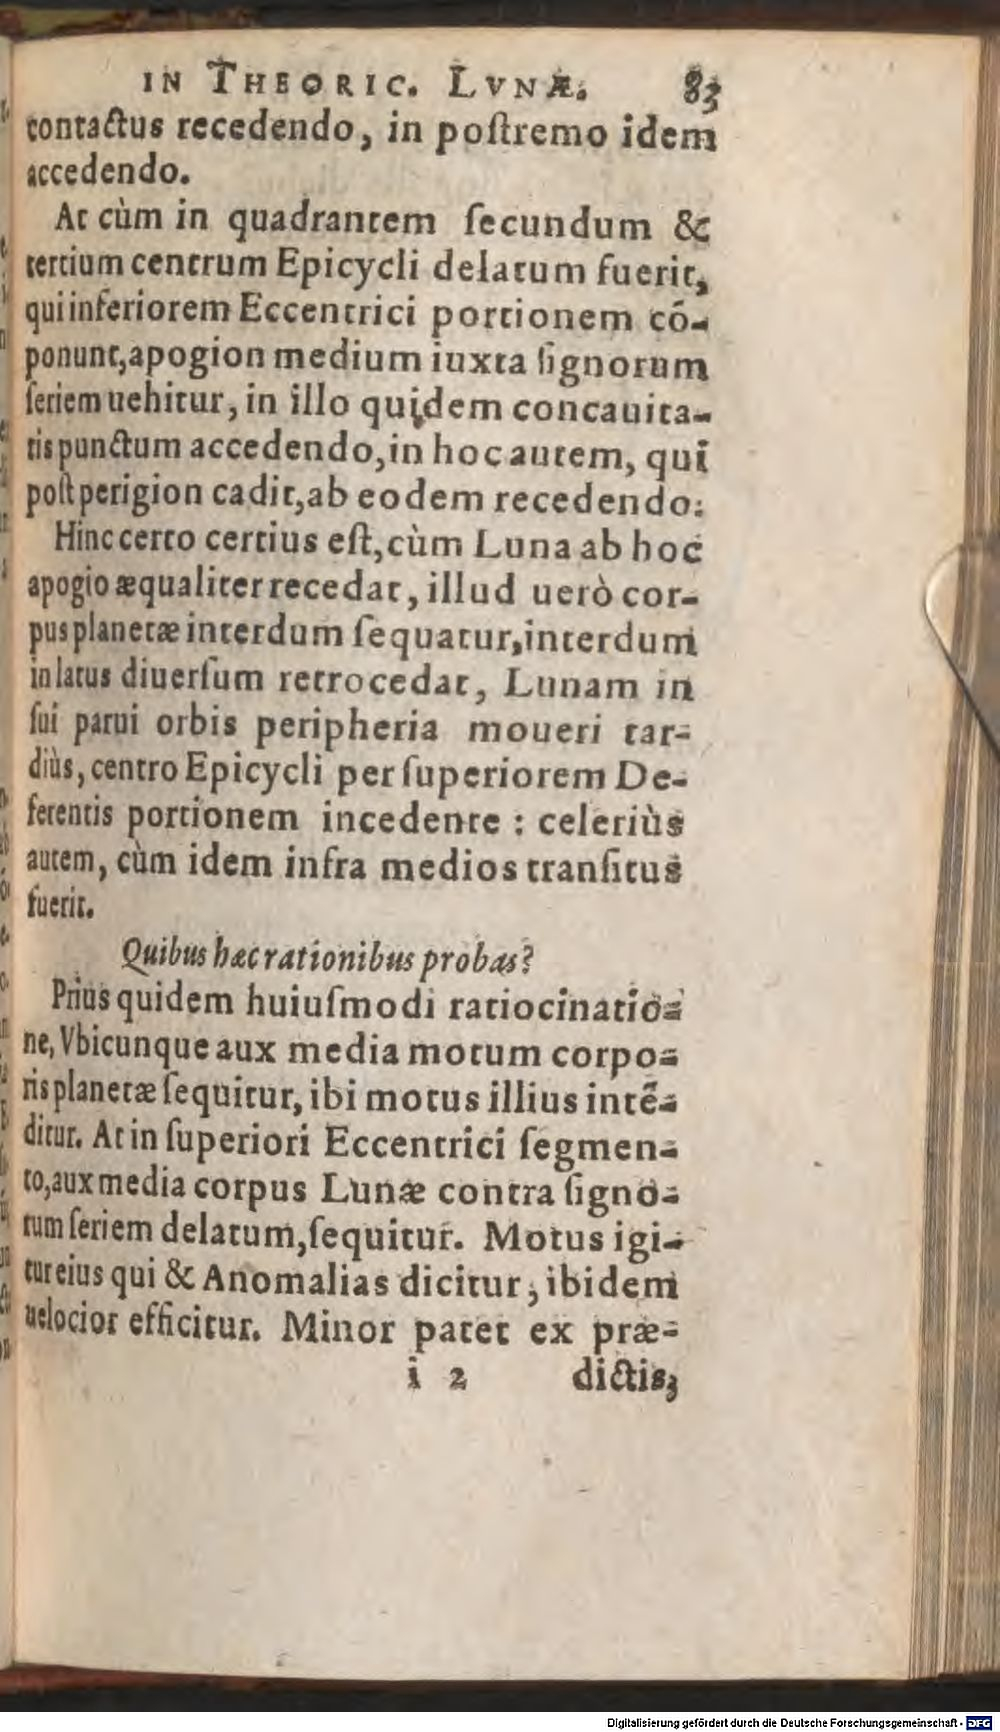 IN THEORIC. LVNÆ. 83
contactus recedendo, in poſtremo idem
accedendo.
At cùm in quadrantem ſecundum &
tertium centrum Epicycli delatum fuerit,
qui inferiorem Eccentrici portionem cō-
ponunt, apogion medium iuxta ſignorum
ſeriem uehitur, in illo quidem concauita-
tis punctum accedendo, in hoc autem, qui
poſt perigion cadit, ab eodem recedendo:
Hinc certo certius eſt, cùm Luna ab hoc
apogio æqualiter recedat, illud uerò cor-
pus planetæ interdum ſequatur, interdum
in latus diuerſum retrocedat, Lunam in
ſui parui orbis peripheria moueri tar-
diùs, centro Epicycli per ſuperiorem De-
ferentis portionem incedente : celeriùs
autem, cùm idem infra medios tranſitus
fuerit.
Quibus hæc rationibus probas?
Priùs quidem huiuſmodi ratiocinatio-
ne, Vbicunque aux media motum corpo-
ris planetæ ſequitur, ibi motus illius intē-
ditur. At in ſuperiori Eccentrici ſegmen-
to, aux media corpus Lunæ contra ſigno-
rum ſeriem delatum, ſequitur. Motus igi-
tur eius qui & Anomalias dicitur, ibidem
uelocior efficitur. Minor patet ex præ-
i 2 dictis,
Digitalisierung gefördert durch die Deutsche Forschungsgemeinschaft - DFG